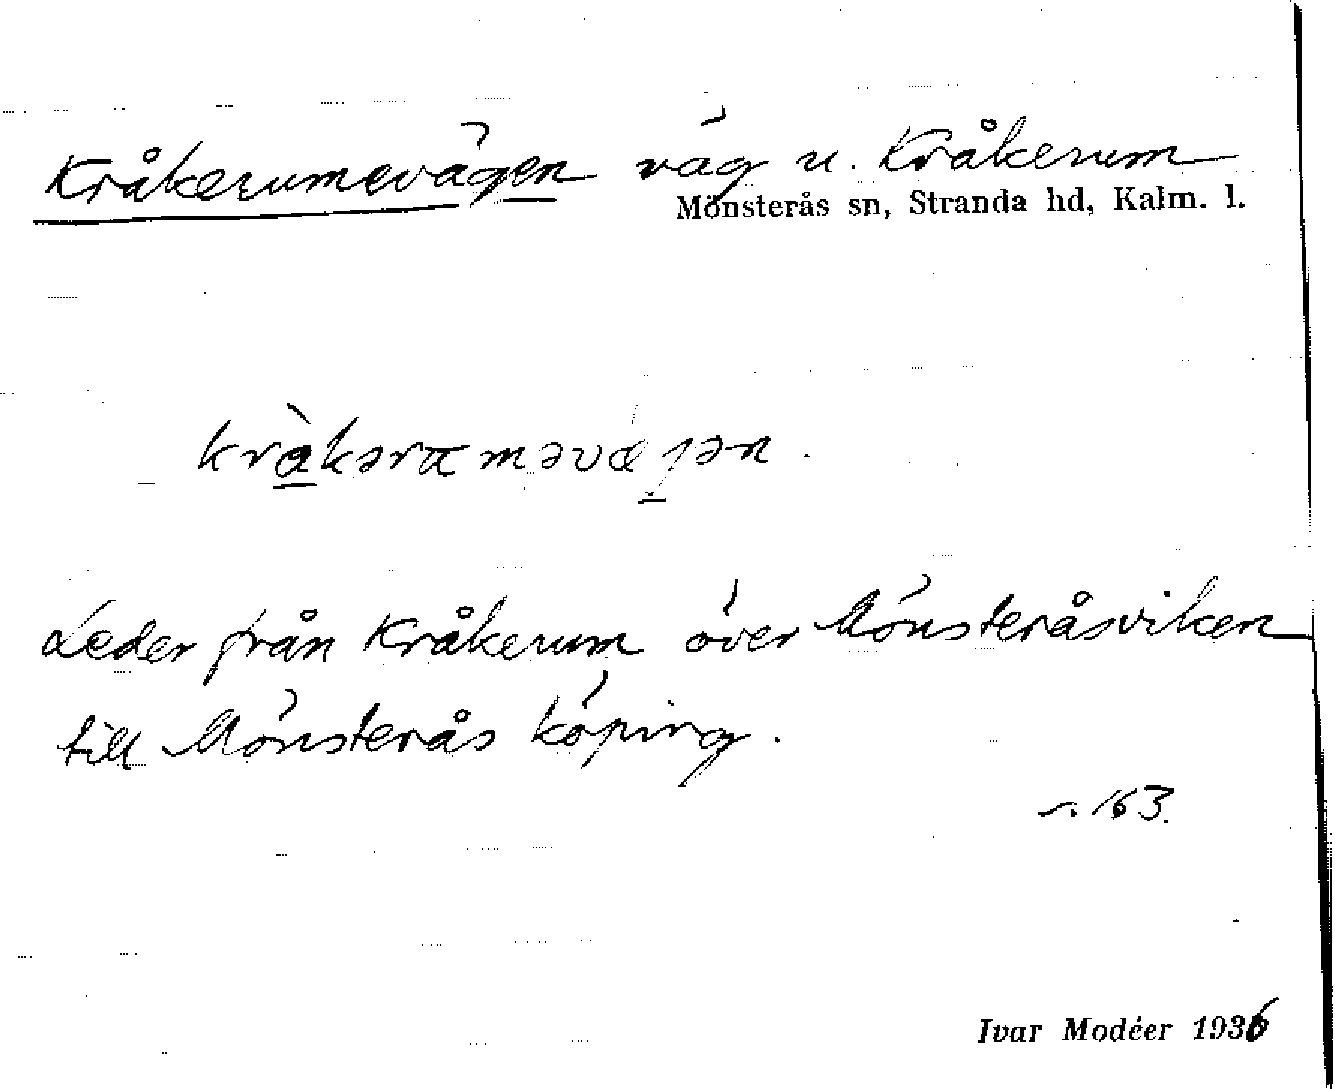 Kråkerumevägen väg u. Kråkerum
Mönsterås sn, Stranda hd, Kalm. l.
Leder från Kråkerum över Mönsteråsviken
till Mönsterås köping.
s. 163.
Ivar Modéer 1936